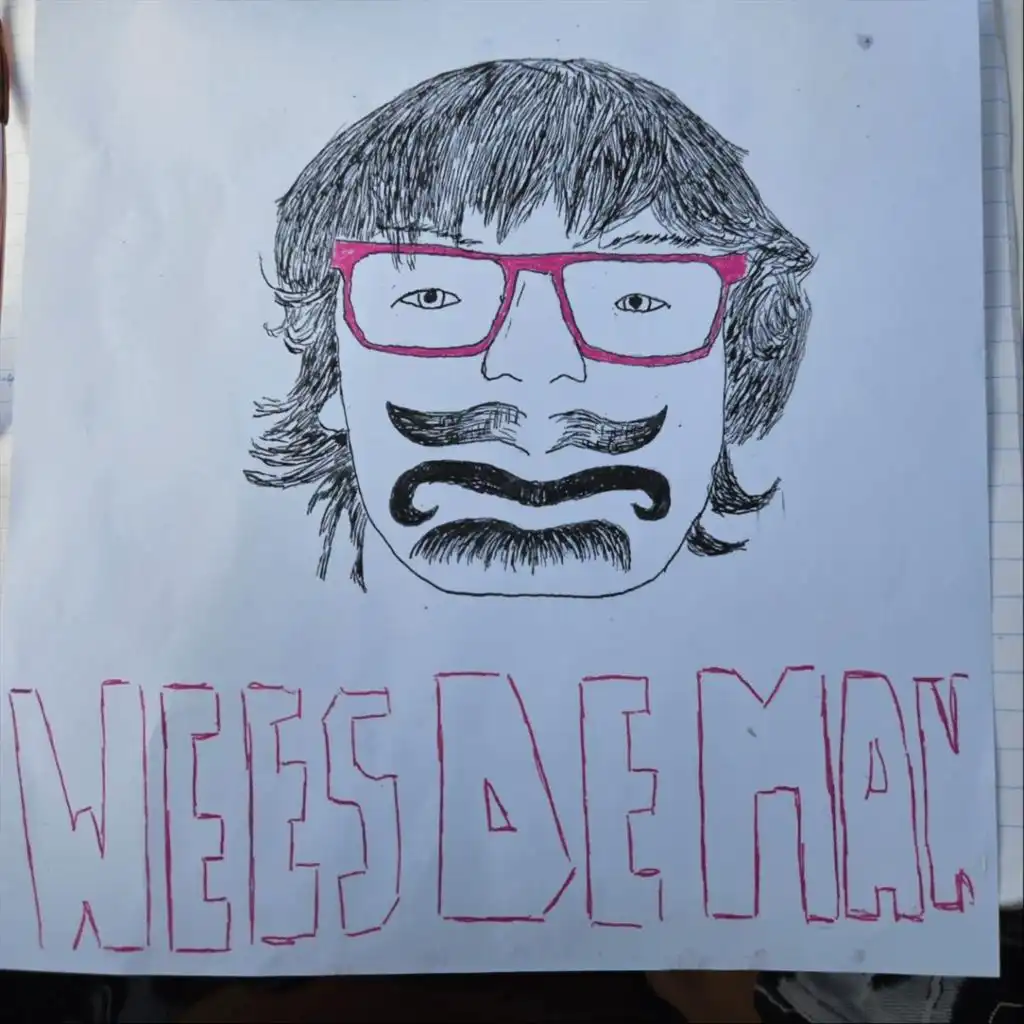 WEES DE MAN